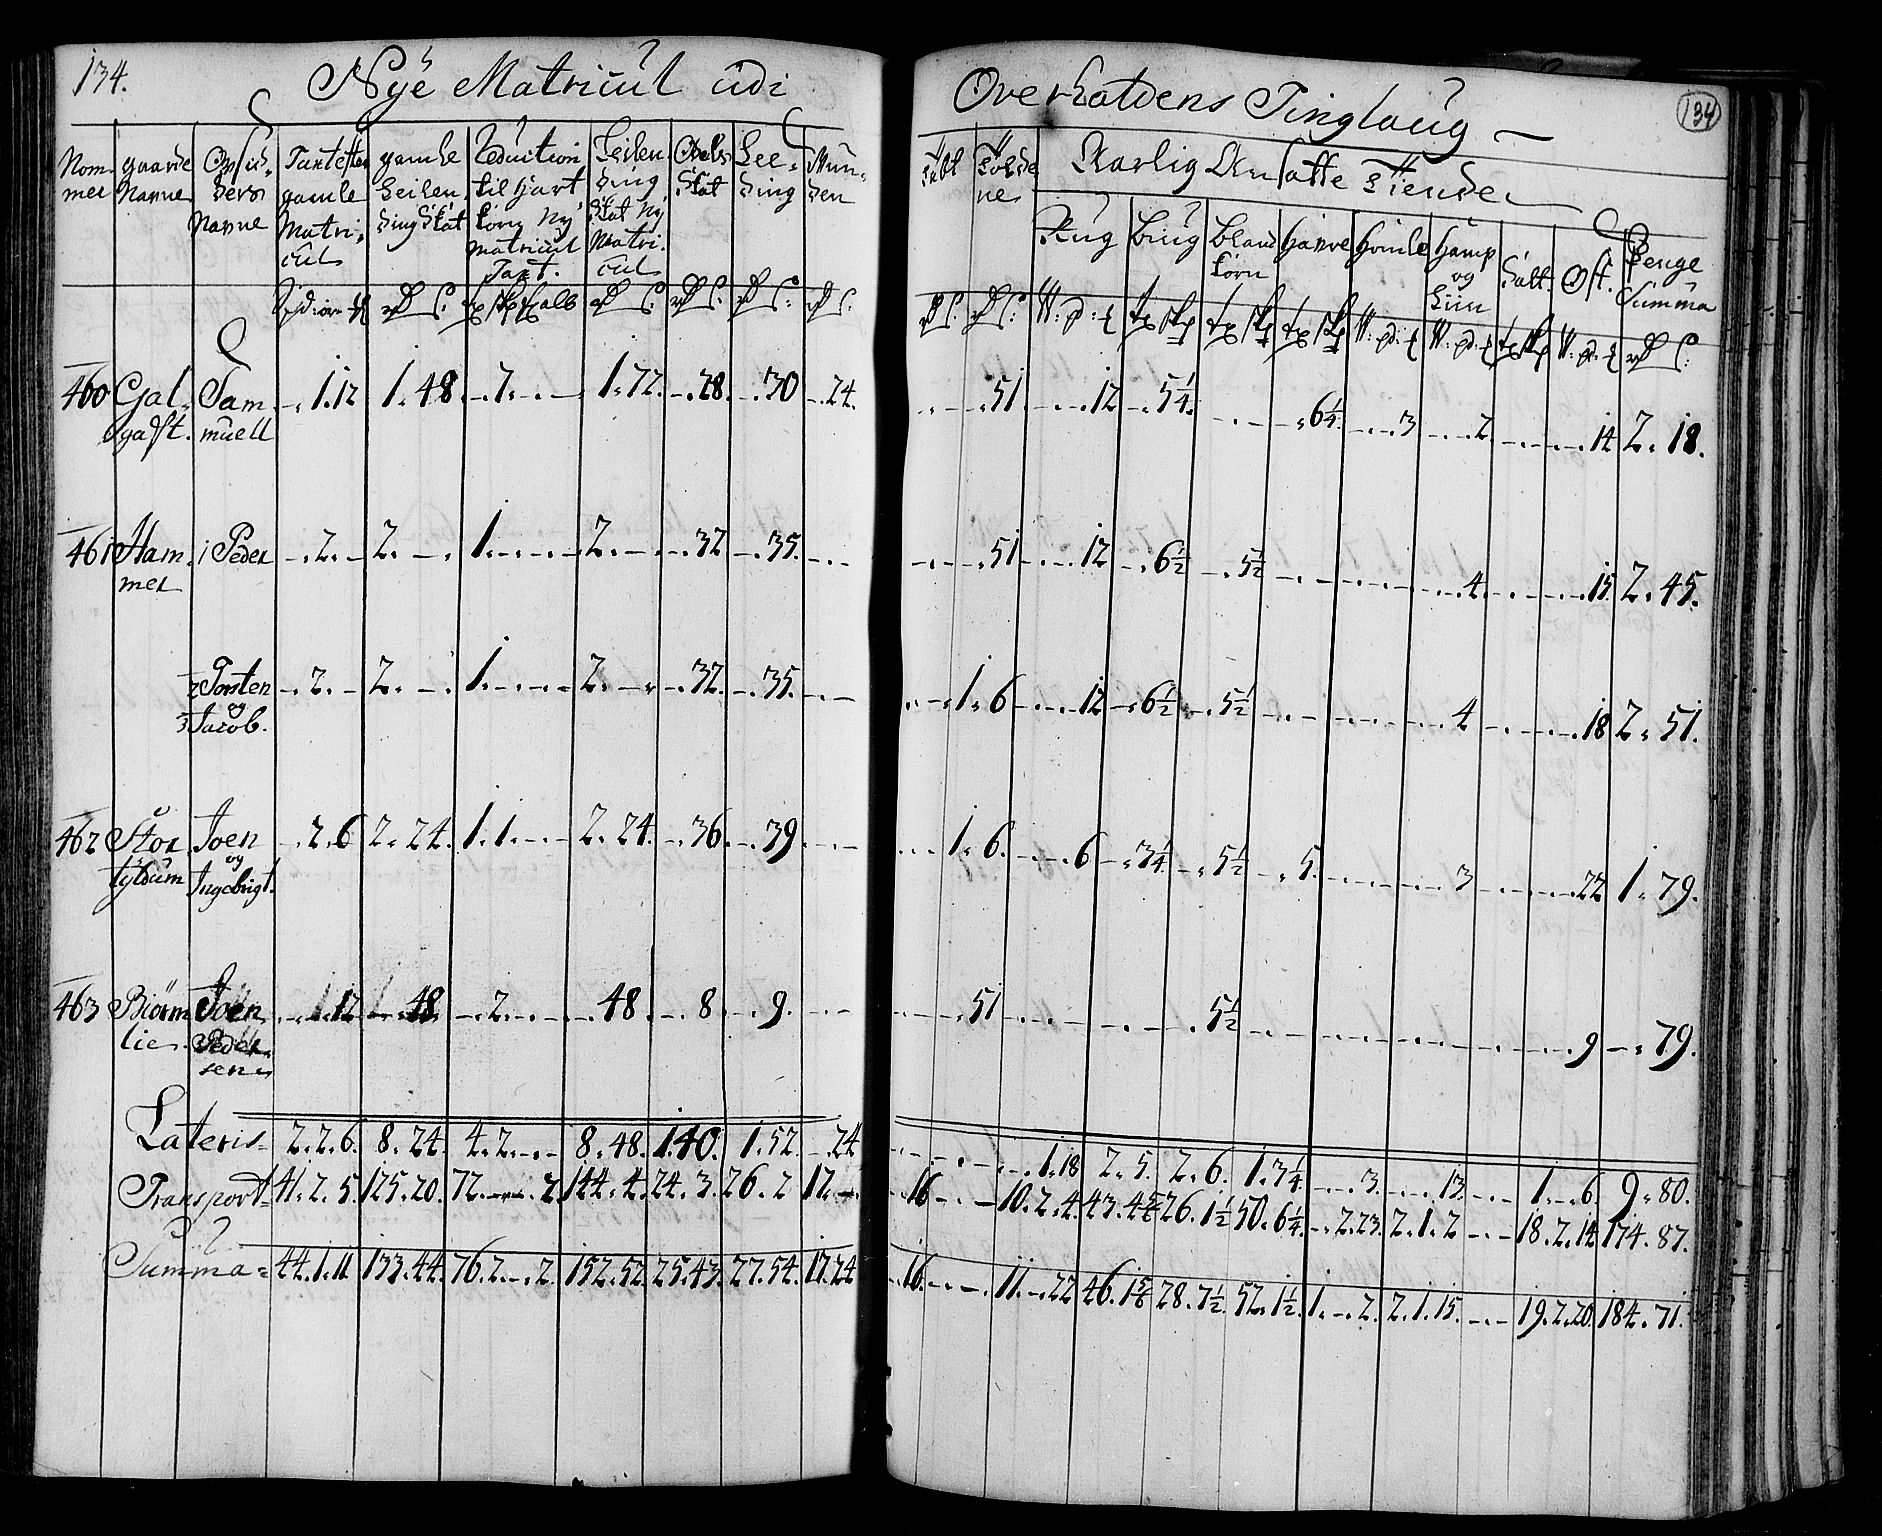 134.
Nÿe Matricul udi
Overhaldens Tinglaug
134
Nom-
mer
gaarde
Navne
Opsid-
ders
Navne
Taxt efter
gamle
Matri-
cul
gamle
Leilen-
dingskat
Reduction
til hart
korn Nÿ
matricul
Taxt.
Leilen
ding
Skat Nÿ
Matri.
cul
Odels
Skat
Lee-
ding
Mun-
den
Aarlig Ansatte Tiende
Rug Biug bland
korn
havre homle hamp
og
Liin
Salt. Ost. Penge
Summa
460 Gal-
gafst. Sam-
muell -. 1.12 1. 48 -. 7. -. - 1. 72. -. 28. -. 30 -. 24.
-. -. 51 -. -. 12 -. 5¼. -. -. 6¼. -. -. 3 -. -. 2 -. -. -. 14 2. 18.
461 Ham-
mer 1 Peder -. 2. - 2. -. 1. -. -. - 2. -. -. 32 -. 35. -. -
-. -. 51 -. -. 12 -. 6½ -. 5½ -. -. -. -. 4 -. -. -. 15 2. 45.
2 Torsten
og
3 Jacob. -. 2. - 2. -. 1. -. -. - 2. -. -. 32. -. 35. -. -
-. - 1. 6 -. -. 12 -. 6½ -. 5½ -. -. -. -. 4 -. -. -. 18 2. 51.
462 Stor
tÿldum Joen
og
Ingebrigt. -. 2. 6 2. 24. 1. 1. -. - 2. 24. -. 36 -. 39 -. -
-. - 1. 6. -. -. 6 -. 3¼. -. 5½ -. 5. -. -. -. 3 -. -. -. 22 1. 79.
463 Biörn
lie. Joen
Peder
sen -. 1. 12 1. 48 -. 2. -. - -. 48 -. 8 -. 9. -. -
-. -. 51 -. -. -. -. 5½ -. -. -. -. -. -. 9 -. 79.
Lateris 2. 2. 6. 8. 24. 4. 2. -. - 8. 48. 1. 40. 1. 52. -. 24
-. -. -. -. 1. 18 2. 5. 2. 6. 1. 3¼ -. -. 3. -. -. 13. -. - 1. -. 6. 9. 80.
Transport 41. 2. 5. 125. 20. 72. -. -. 2. 144. 4. 24. 3. 26. 2 17. -.
16 -. - 10. 2. 4. 43. 4⅚ 26. 1½ 50. 6¼. -. 2. 23. 2. 1. 2 -. - 18. 2. 14 174. 87.
Summa 44. 1. 11 133. 44. 76. 2. -. 2. 152. 52. 25. 43. 27. 54. 17. 24
-. 16. -. -. 11. -. 22 46. 1⅚ 28. 7½. 52. 1½. 1. -. 2. 2. 1. 15. -. - 19. 2. 20. 184. 71.